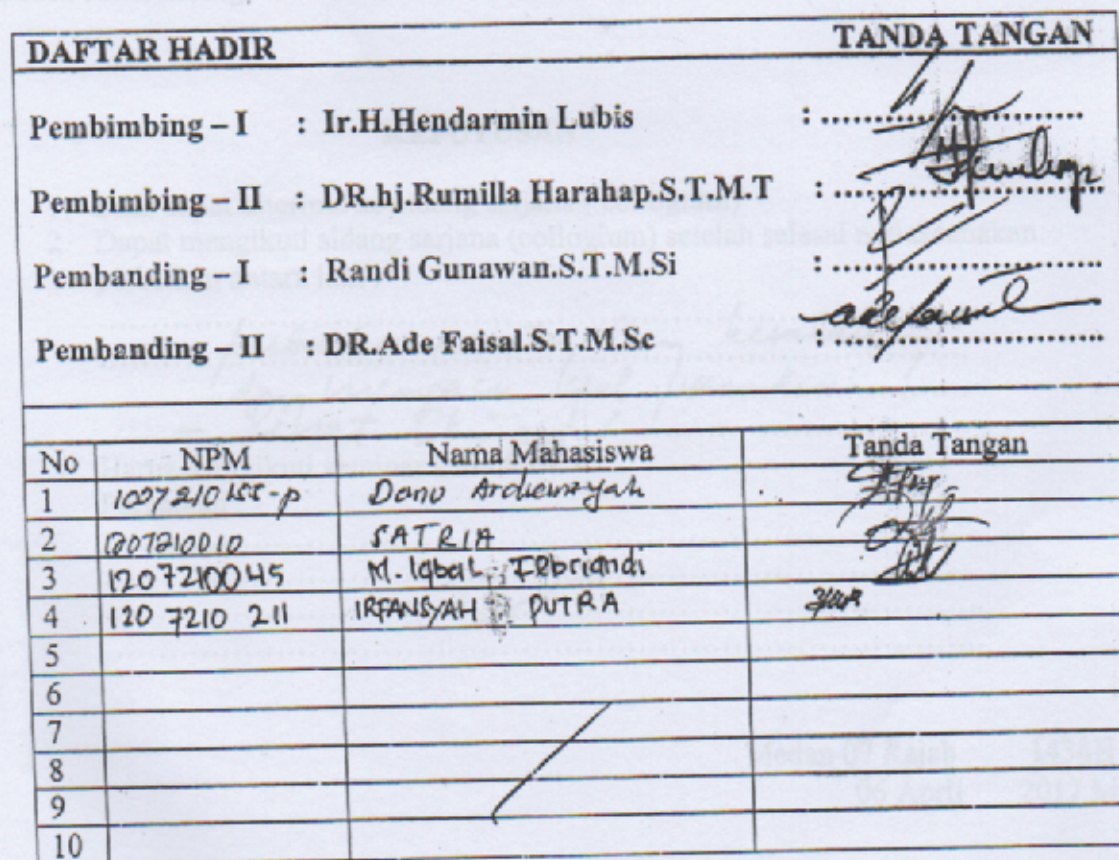 DAFTAR HADIR TANDA TANGAN
Pembimbing – I : Ir.H.Hendarmin Lubis :
Pembimbing – II : DR.hj.Rumilla Harahap.S.T.M.T :
Pembanding – I : Randi Gunawan.S.T.M.Si :
Pembanding – II : DR.Ade Faisal.S.T.M.Sc :
No NPM Nama Mahasiswa Tanda Tangan
1 Dano Ardiansyah
2 SATRIA
3 1207210045 M. Iqbal Febriandi
4 120 7210 211 IRFANSYAH PUTRA
5
6
7
8
9
10